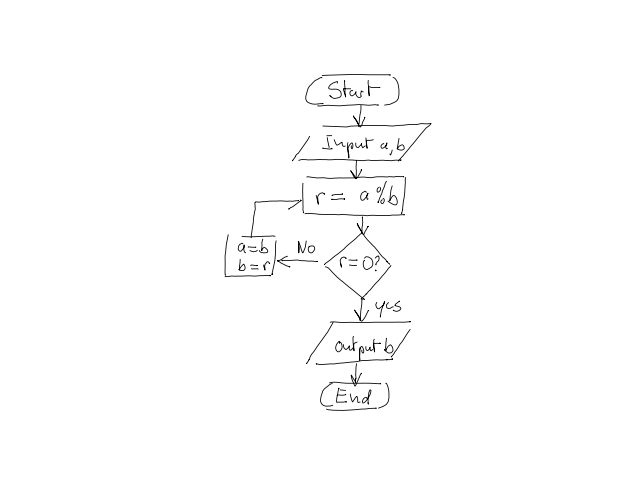 Start
Input a,b
r = a%b
r=0?
No
a=b
b=r
yes
output b
End